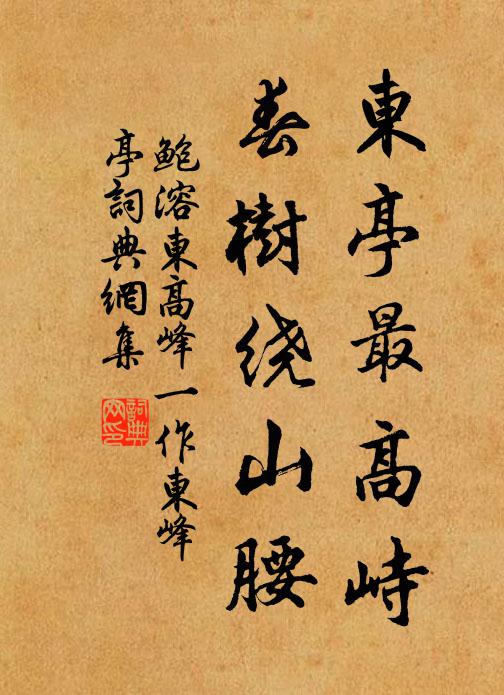 東亭最高峙
春樹绕山腰
鲍溶東高峰一作東峰
亭詞典網集
詞典網印